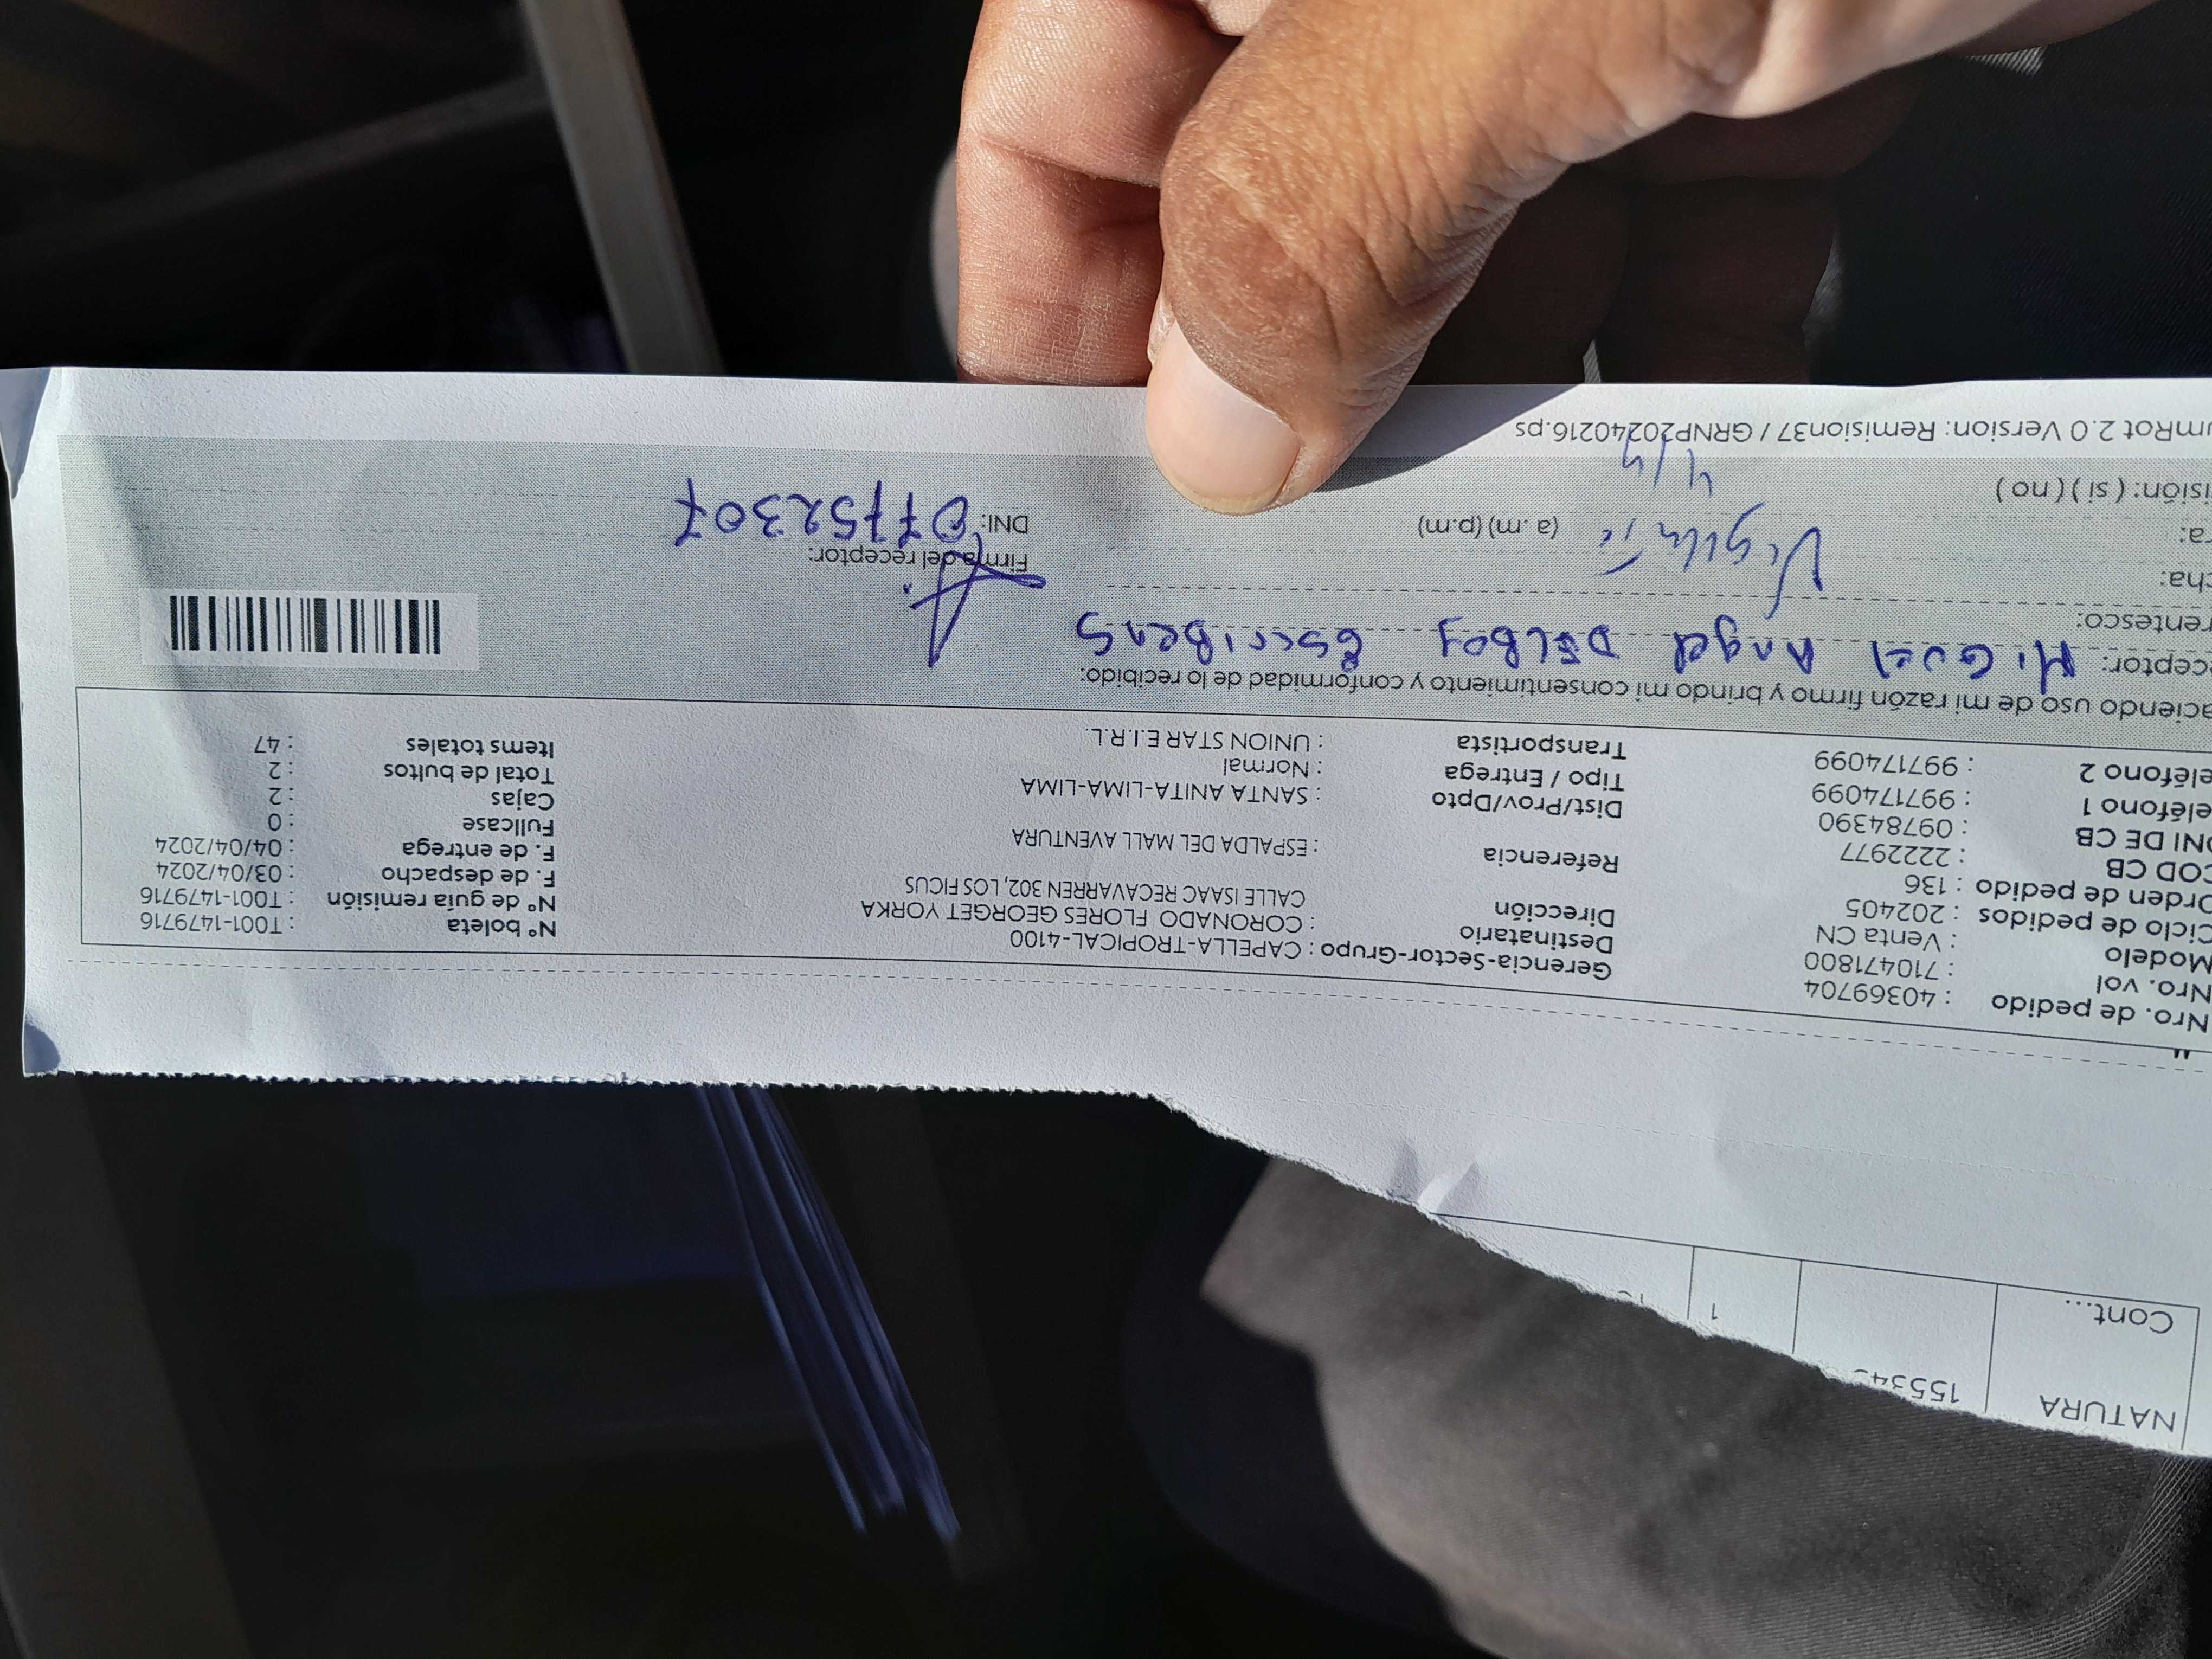 NATURA
Cont...
1
Nro. de pedido : 40369704
Nro. vol : 710471800
Modelo : Venta CN
Ciclo de pedidos : 202405
Orden de pedido : 136
COD CB : 2222977
DNI DE CB : 09784390
eléfono 1 : 997174099
eléfono 2 : 997174099
Gerencia-Sector-Grupo : CAPELLA-TROPICAL-4100
Destinatario : CORONADO FLORES GEORGET YORKA
Dirección CALLE ISAAC RECAVARREN 302, LOS FICUS
Referencia : ESPALDA DEL MALL AVENTURA
Dist/Prov/Dpto : SANTA ANITA-LIMA-LIMA
Tipo / Entrega : Normal
Transportista : UNION STAR E.I.R.L.
N° boleta : T001-1479716
N° de guía remisión : T001-1479716
F. de despacho : 03/04/2024
F. de entrega : 04/04/2024
Fullcase : 0
Cajas : 2
Total de bultos : 2
Items totales : 47
aciendo uso de mi razón firmo y brindo mi consentimiento y conformidad de lo recibido:
ceptor: MiGuel Angel DELBOY EscriBens
rentesco:
cha:
ra: (a.m) (p.m)
isión: ( si ) ( no )
4/4
Firma del receptor:
DNI: 07752307
umRot 2.0 Version: Remision37 / GRNP20240216.ps